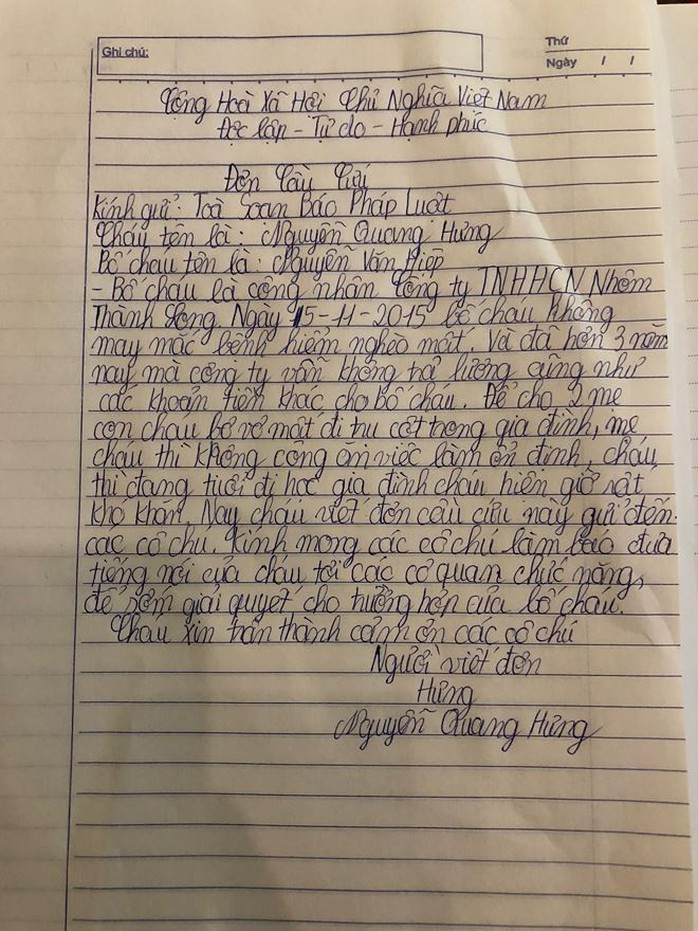 Ghi chú:
Thứ
Ngày / /
Cộng Hoà Xã Hội Chủ Nghĩa Việt Nam
Độc lập - Tự do - Hạnh phúc
Đơn Cầu Cứu
Kính gửi: Toà Soạn Báo Pháp Luật
Cháu tên là: Nguyễn Quang Hưng
Bố cháu tên là: Nguyễn Văn Hiệp
- Bố cháu là công nhân Công ty TNHHCN Nhôm
Thành Long. Ngày 15-11-2015 bố cháu không
may mắc bệnh hiểm nghèo mất. Và đã hơn 3 năm
nay mà công ty vẫn không trả lương cũng như
các khoản tiền khác cho bố cháu. Để cho 2 mẹ
con cháu bơ vơ mất đi trụ cột trong gia đình, mẹ
cháu thì không công ăn việc làm ổn định, cháu
thì đang tuổi đi học gia đình cháu hiện giờ rất
khó khăn. Nay cháu viết đơn cầu cứu này gửi đến
các cô chú. Kính mong các cô chú làm báo đưa
tiếng nói của cháu tới các cơ quan chức năng,
để sớm giải quyết cho trường hợp của bố cháu.
Cháu xin trân thành cảm ơn các cô chú
Người viết đơn
Hưng
Nguyễn Quang Hưng